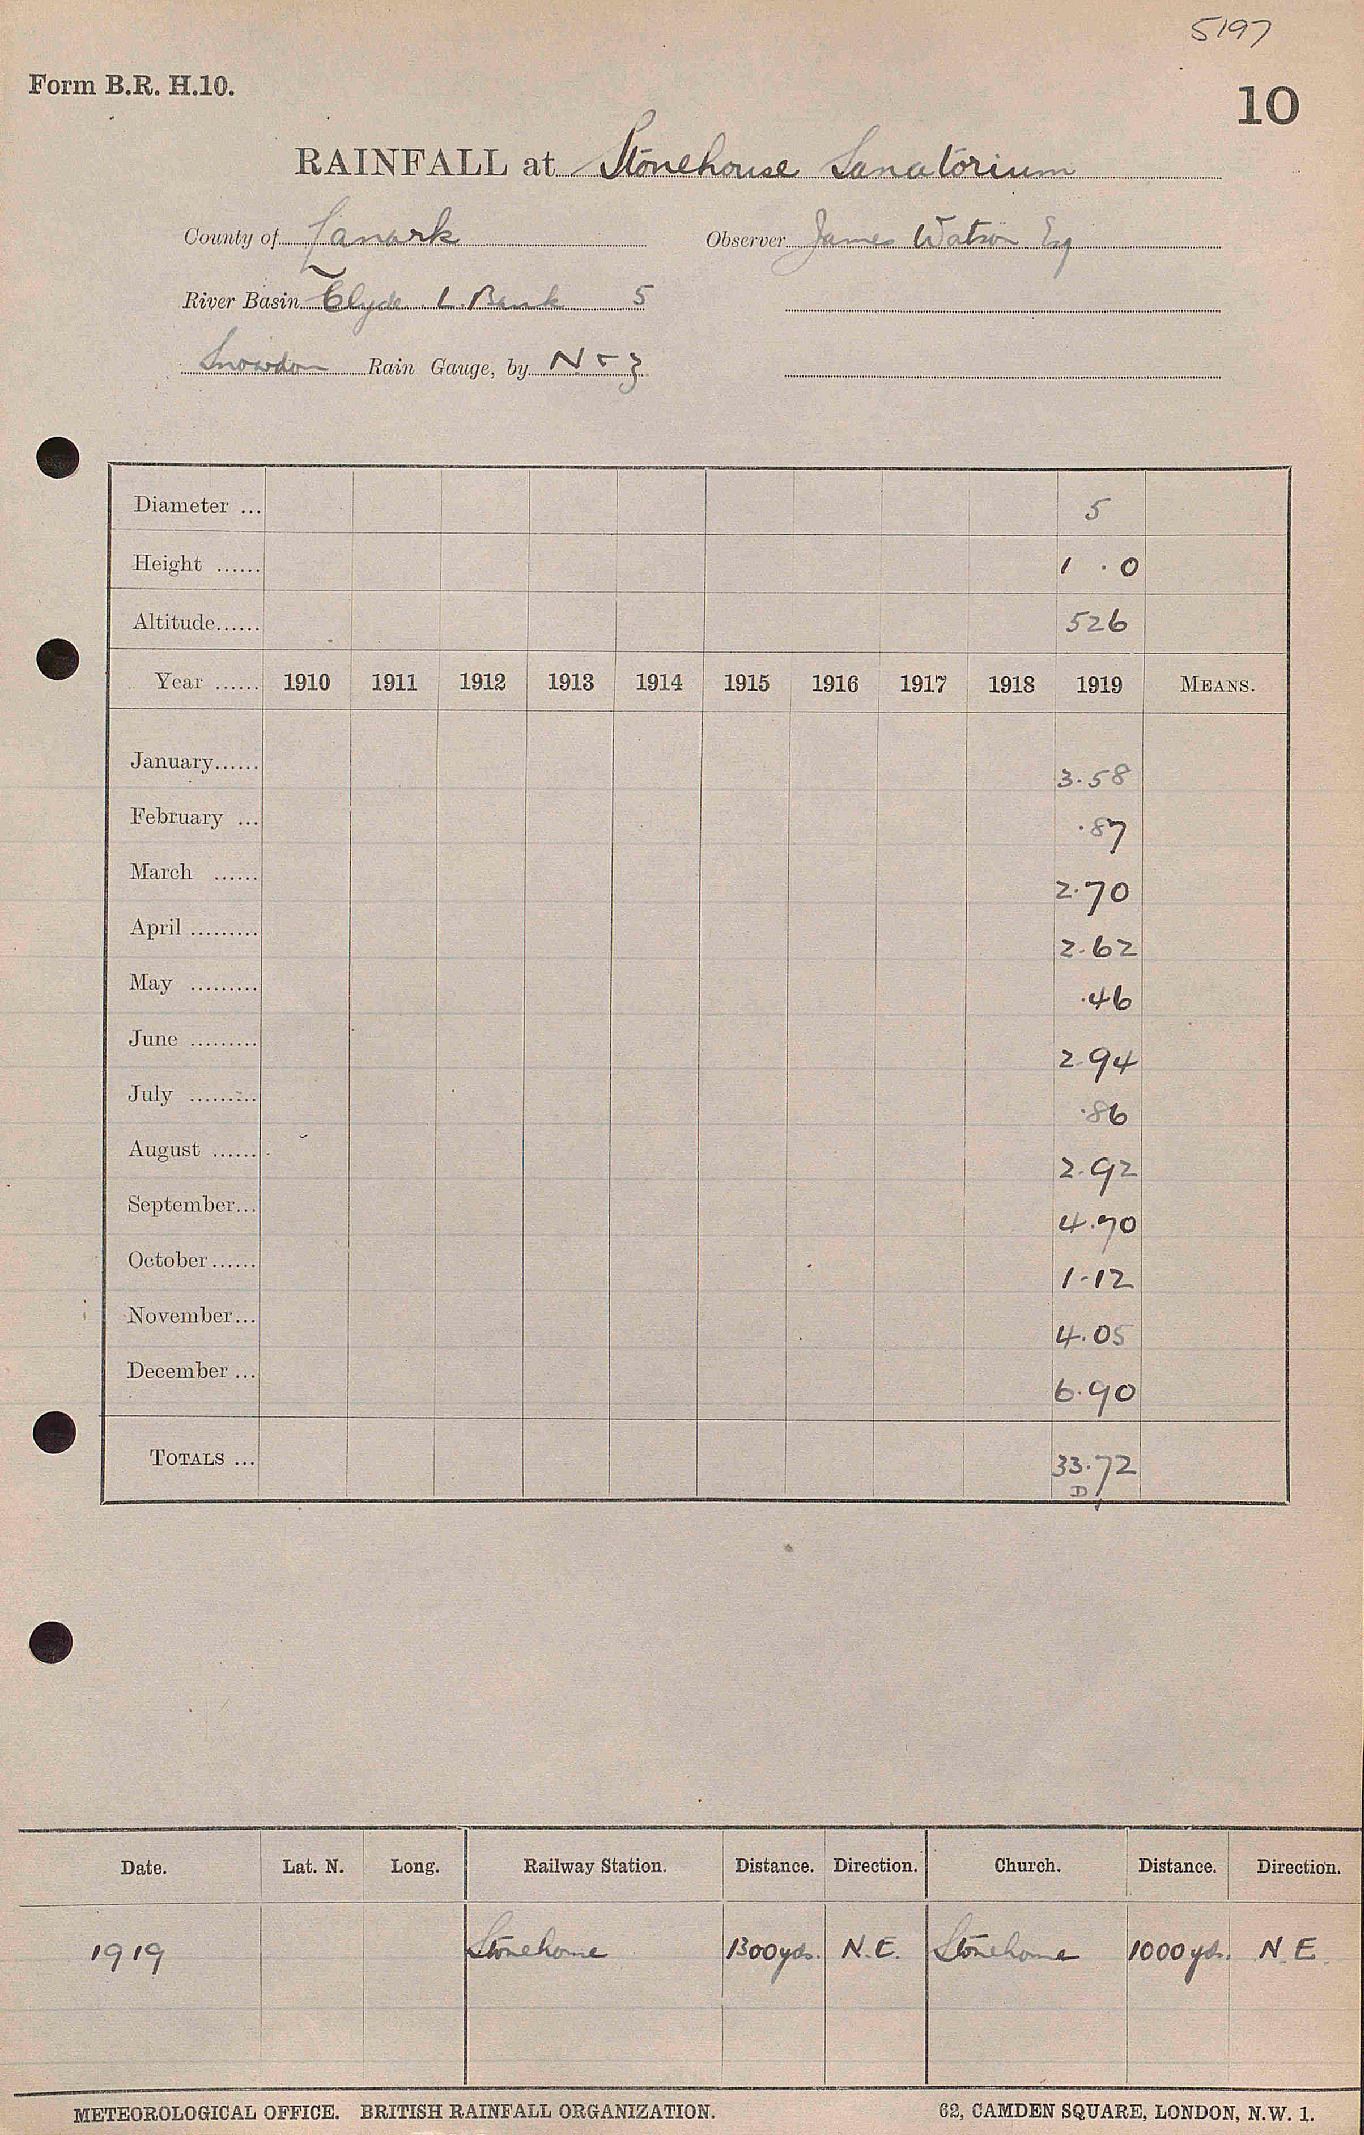 5197
Form B.R. H.10.
10
RAINFALL at Stonehouse Sanatorium
County of Lanark Observer James Watson Esq
River Basin Clyde L. Bank 5
Snowdon Rain Gauge, by N & Z
Diameter ... 5
Height ...... 1 . 0
Altitude...... 526
Year ...... 1910 1911 1912 1913 1914 1915 1916 1917 1918 1919 MEANS.
January...... 3.58
February ... .87
March ...... 2.70
April ......... 2.62
May ......... .46
June ......... 2.94
July ......... .86
August ...... 2.92
September... 4.70
October...... 1.12
November... 4.05
December ... 6.90
TOTALS ... 33.72
D
Date. Lat. N. Long. Railway Station. Distance. Direction. Church. Distance. Direction.
1919 Stonehouse 1300 yds. N.E. Stonehouse 1000 yds. N.E.
METEOROLOGICAL OFFICE. BRITISH RAINFALL ORGANIZATION. 62, CAMDEN SQUARE, LONDON, N.W. 1.